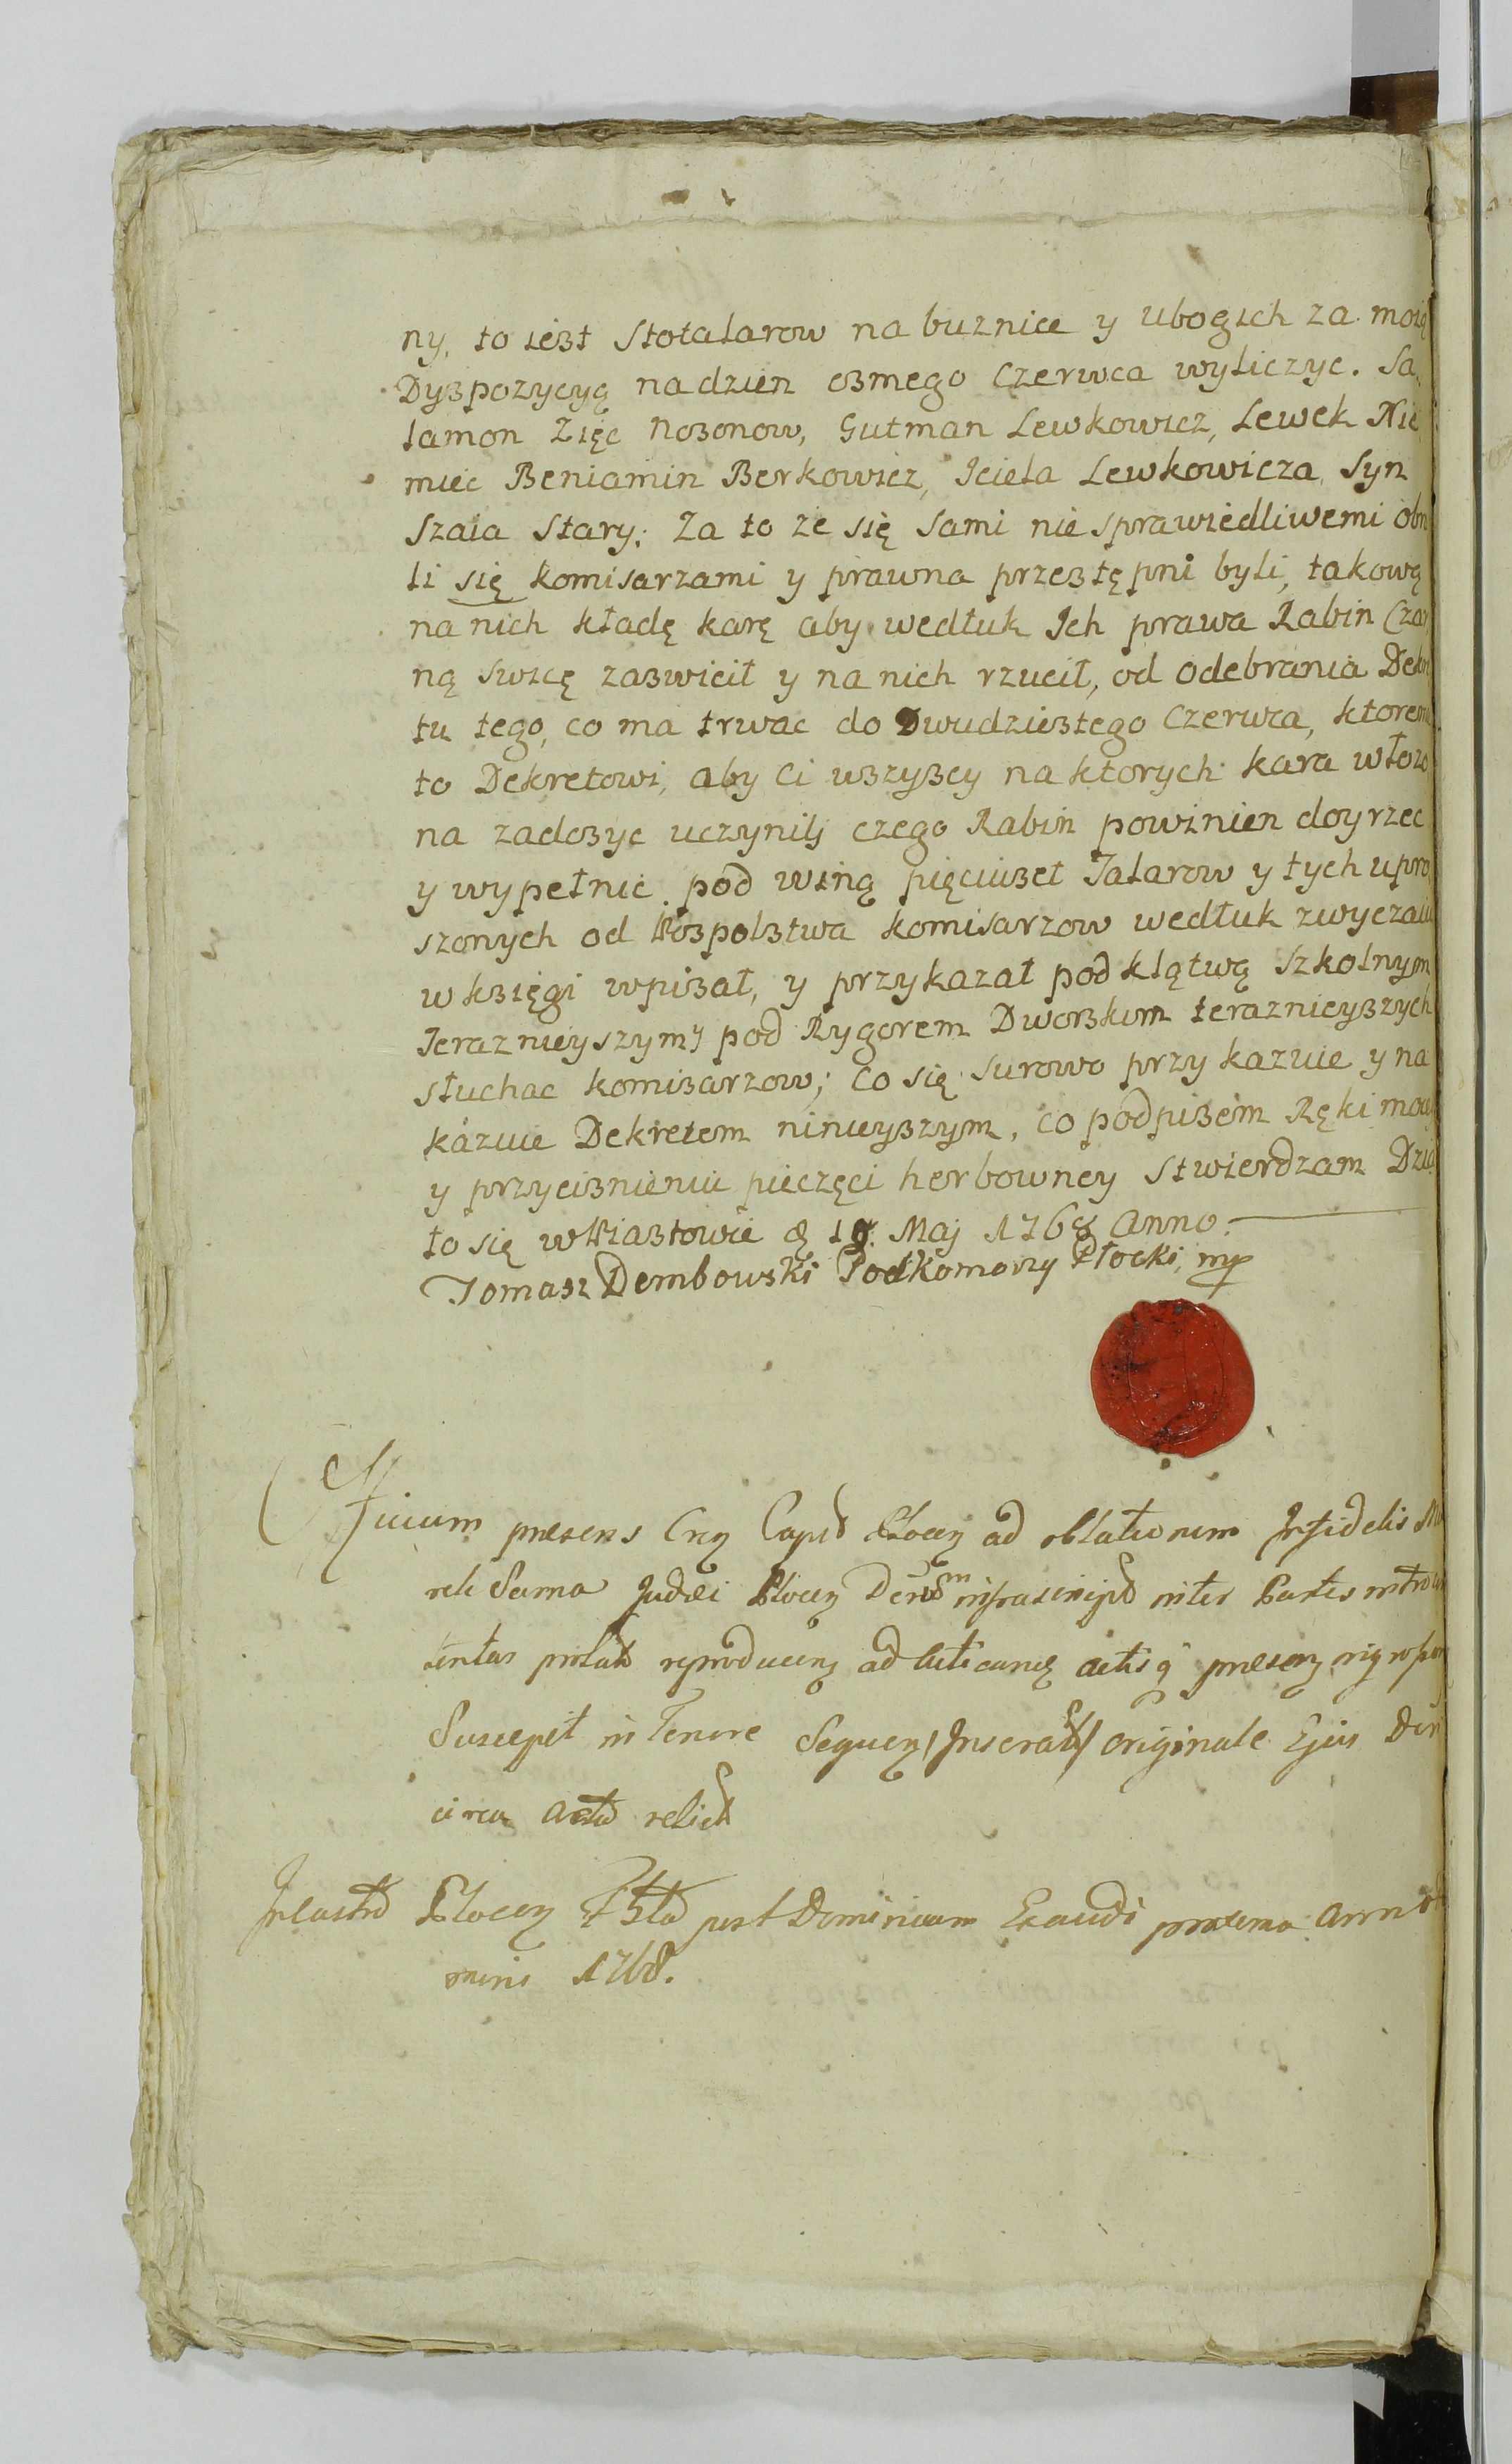 ny, to iest Stotalarow na buznice y ubogich za moię
Dyspozycyą nadzien osmego Czerwca wyliczyc. Sa,
lamon Zięc Nosonow, Gutman Lewkowicz, Lewek Nie
miec Beniamin Berkowicz, Iciela Lewkowicza Syn
Szaia Stary; Za to ze się Sami nie sprawiedliwemi obra
li się komisarzami y prawna przestępni byli, takową
na nich kładę karę aby wedłuk Ich prawa Rabin Czar
ną swicę zaswicił y na nich rzucił, od odebrania Dekre
tu tego, co ma trwac do Dwudziestego Czerwca, ktoremu
to Dekretowi, aby Ci wszyscy na ktorych kara włozo
na zadosyc uczynily czego Rabin powinien doyrzec
y wypełnic pod winą pięciuset Talarow y tych upro
szonych od Pospolstwa komisarzow wedłuk zwyczaiu
w księgi wpisał, y przykazał pod klątwą Szkolnym
Teraznieyszym y pod Rygorem Dworskim teraznieyszych
słuchac komisarzow; co się surowo przykazuie y na
kazuie Dekretem ninieyszym, co podpisem Ręki moiey
y przycisnieniu pieczęci herbowney Stwierdzam Dzia
ło się w Piastowie d 18. Maj 1768 Anno.
Tomasz Dembowski Podkomorzy Płocki, mp
Officium presens Cap Plocen ad oblationem Infidelis
Judei Plocen inter Partes
ad
Suscepit in Tenore Sequen Inserat Originale Ejus
circa Acta relict
In Castro Plocen post Dominicam Exaudi proxima Anno
mini 1768.